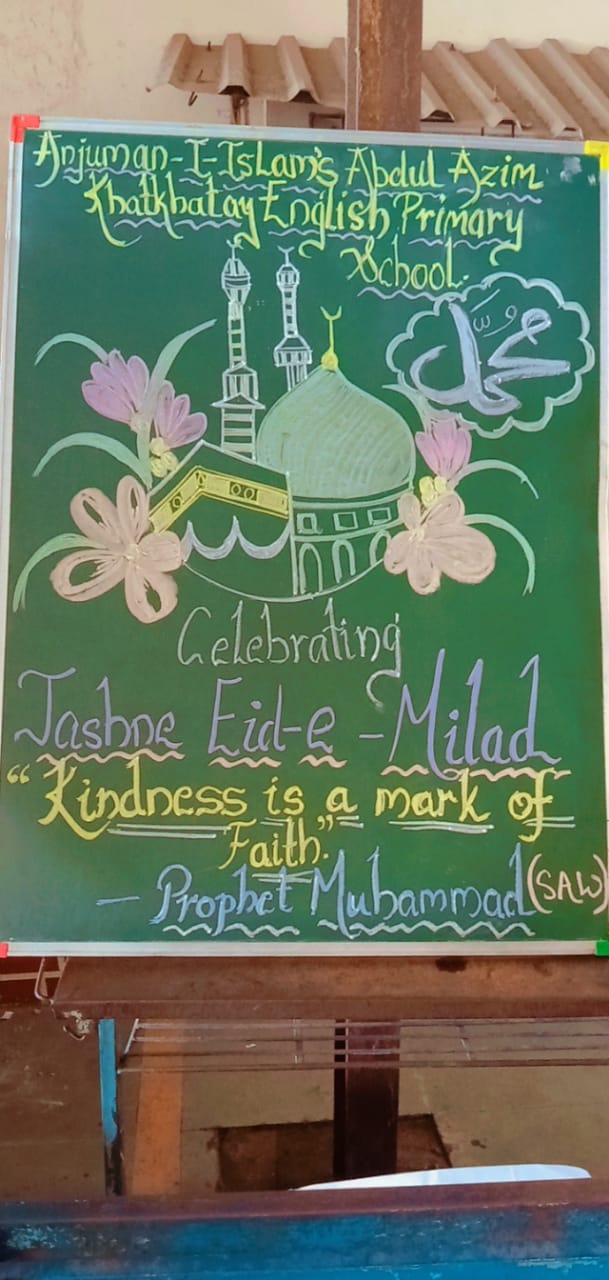 Anjuman-I-Islam's Abdul Azim
Khatkhatay English Primary
School.
محمد
Celebrating
Jashne Eid-e-Milad
"Kindness is a mark of
Faith."
— Prophet Muhammad (SAW)